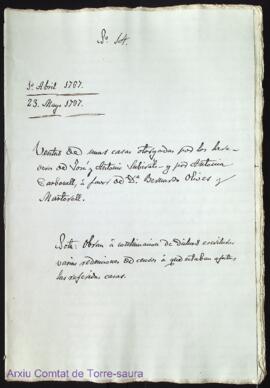 Nº 14.
1º Abril 1787.
23. Mayo 1797.
Ventas de unas casas otorgadas por los here-
deros de José y Antonio Subirats y por Antonia
Carbonell, á favor de Dn. Bernardo Olives y
Martorell.
Nota: Obran á continuacion de dichas escrituras
varias redenciones de censos á que estaban afectas
las referidas casas.
Arxiu Comtat de Torre-saura